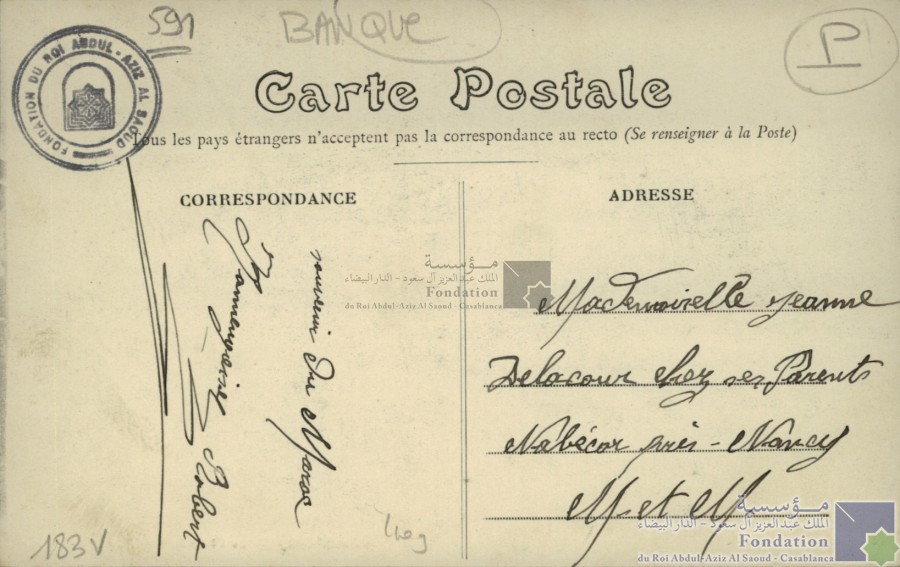 591
BANQUE
P
FONDATION DU ROI ABDUL-AZIZ AL SAOUD
Carte Postale
Tous les pays étrangers n'acceptent pas la correspondance au recto (Se renseigner à la Poste)
CORRESPONDANCE
souvenir du Maroc
Robert
ADRESSE
Mademoiselle Jeanne
Delacour chez ses Parents
Nabécor près - Nancy
M. et M.
مؤسسة
الملك عبد العزيز آل سعود - الدار البيضاء
Fondation
du Roi Abdul-Aziz Al Saoud - Casablanca
183V
مؤسسة
الملك عبد العزيز آل سعود - الدار البيضاء
Fondation
du Roi Abdul-Aziz Al Saoud - Casablanca